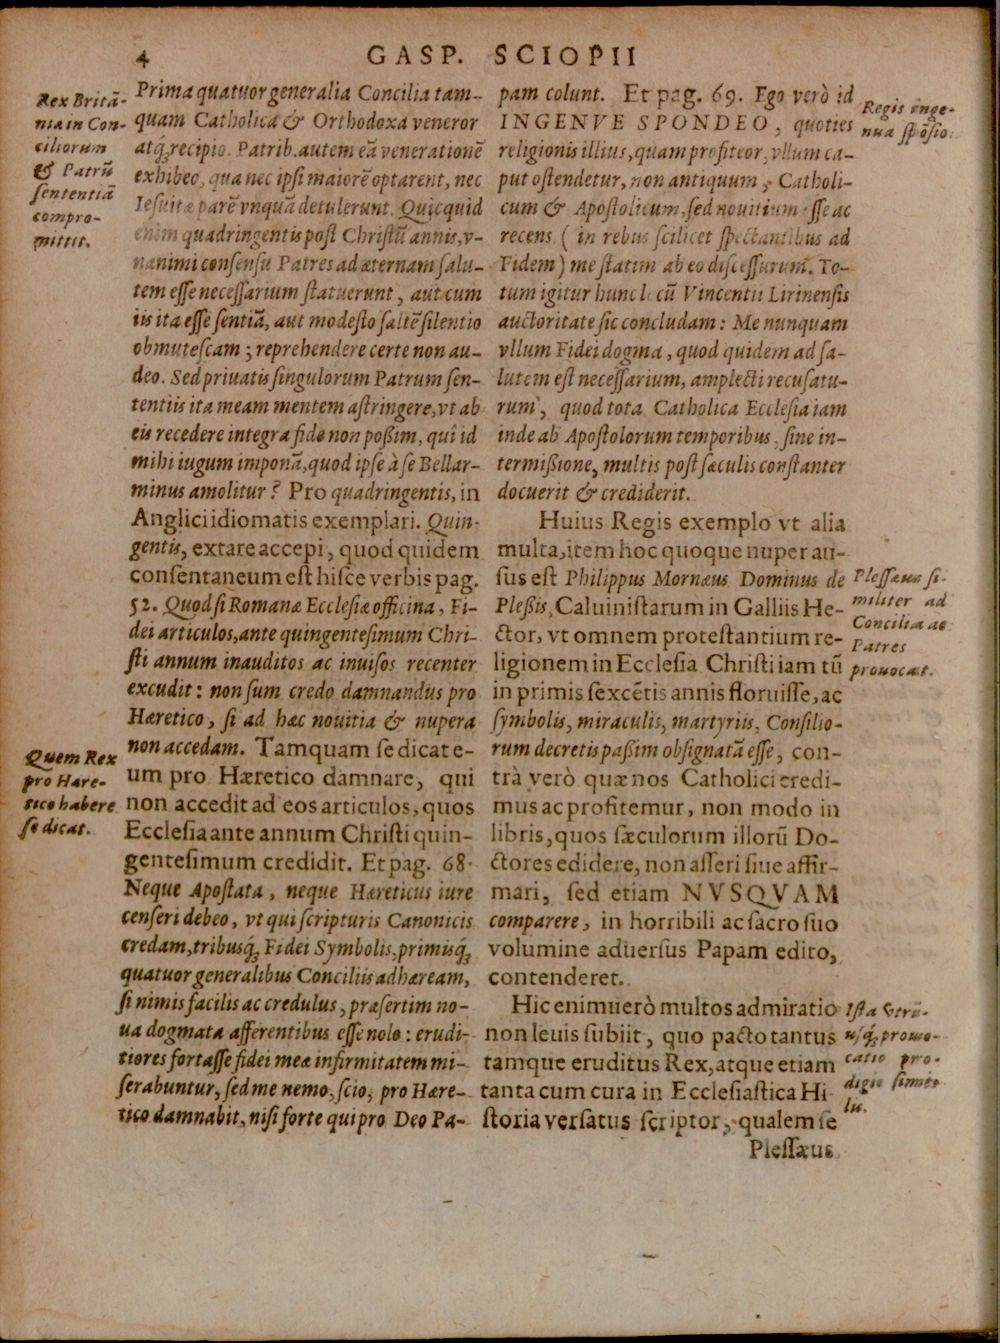 4 GASP. SCIOPII
Rex Britā-
nia in Con-
ciliorum
& Patrū
sententiā
compro-
mittit.
Prima quatuor generalia Concilia tam-
quam Catholica & Orthodoxa veneror
atq́; recipio. Patrib. autem eā venerationē
exhibeo, qua nec ipsi maiorē optarent, nec
Iesuitæ parē vnquā detulerunt. Quicquid
enim quadringentis post Christū annis, v-
nanimi consensu Patres ad æternam salu-
tem esse necessarium statuerunt, aut cum
iis ita esse sentiā, aut modesto saltē silentio
obmutescam; reprehendere certe non au-
deo. Sed priuatis singulorum Patrum sen-
tentiis ita meam mentem astringere, vt ab
eis recedere integra fide non poßim, quî id
mihi iugum imponā, quod ipse à se Bellar-
minus amolitur? Pro quadringentis, in
Anglici idiomatis exemplari. Quin-
gentis, extare accepi, quod quidem
consentaneum est hisce verbis pag.
52. Quod si Romanæ Ecclesiæ officina, Fi-
dei articulos, ante quingentesimum Chri-
sti annum inauditos ac inuisos recenter
excudit: non sum credo damnandus pro
Hæretico, si ad hæc nouitia & nupera
non accedam. Tamquam se dicat e-
um pro Hæretico damnare, qui
non accedit ad eos articulos, quos
Ecclesia ante annum Christi quin-
gentesimum credidit. Et pag. 68.
Neque Apostata, neque Hæreticus iure
censeri debeo, vt qui scripturis Canonicis
credam, tribusq́; Fidei Symbolis, primisq́;
quatuor generalibus Conciliis adhæream,
si nimis facilis ac credulus, præsertim no-
ua dogmata afferentibus esse nolo: erudi-
tiores fortasse fidei meæ infirmitatem mi-
serabuntur, sed me nemo, scio, pro Hære-
tico damnabit, nisi forte qui pro Deo Pa-
Quem Rex
pro Hære-
tico habere
se dicat.
pam colunt. Et pag. 69. Ego verò id
INGENVE SPONDEO, quoties
religionis illius, quam profiteor, vllum ca-
put ostendetur, non antiquum, Catholi-
cum & Apostolicum, sed nouitium esse ac
recens (in rebus scilicet spectantibus ad
Fidem) me statim ab eo discessurum. To-
tum igitur hunc locū Vincentii Lirinensis
auctoritate sic concludam: Me nunquam
vllum Fidei dogma, quod quidem ad sa-
lutem est necessarium, amplecti recusatu-
rum, quod tota Catholica Ecclesia iam
inde ab Apostolorum temporibus, sine in-
termißione, multis post sæculis constanter
docuerit & crediderit.
Huius Regis exemplo vt alia
multa, item hoc quoque nuper au-
sus est Philippus Mornæus Dominus de
Pleßis, Caluinistarum in Galliis He-
ctor, vt omnem protestantium re-
ligionem in Ecclesia Christi iam tū
in primis sexcētis annis floruisse, ac
symbolis, miraculis, martyriis, Consilio-
rum decretis paßim obsignatā esse, con-
trà verò quæ nos Catholici credi-
mus ac profitemur, non modo in
libris, quos sæculorum illorū Do-
ctores edidere, non asseri siue affir-
mari, sed etiam NVSQVAM
comparere, in horribili ac sacro suo
volumine aduersus Papam edito,
contenderet.
Hic enimuerò multos admiratio
non leuis subiit, quo pacto tantus
tamque eruditus Rex, atque etiam
tanta cum cura in Ecclesiastica Hi-
storia versatus scriptor, qualem se
Plessæus
Regis inge-
nua spōsio.
Plessæus si-
militer ad
Concilia ac
Patres
prouocat.
Ista vtri-
usq́; prouo-
catio pro-
digio simi-
lis.